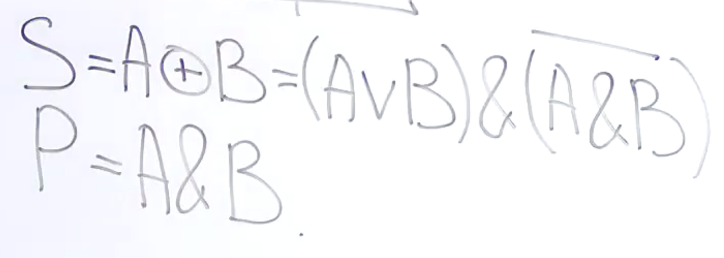 S=A⊕B=(A∨B)&(A̅&̅B̅)
P=A&B.